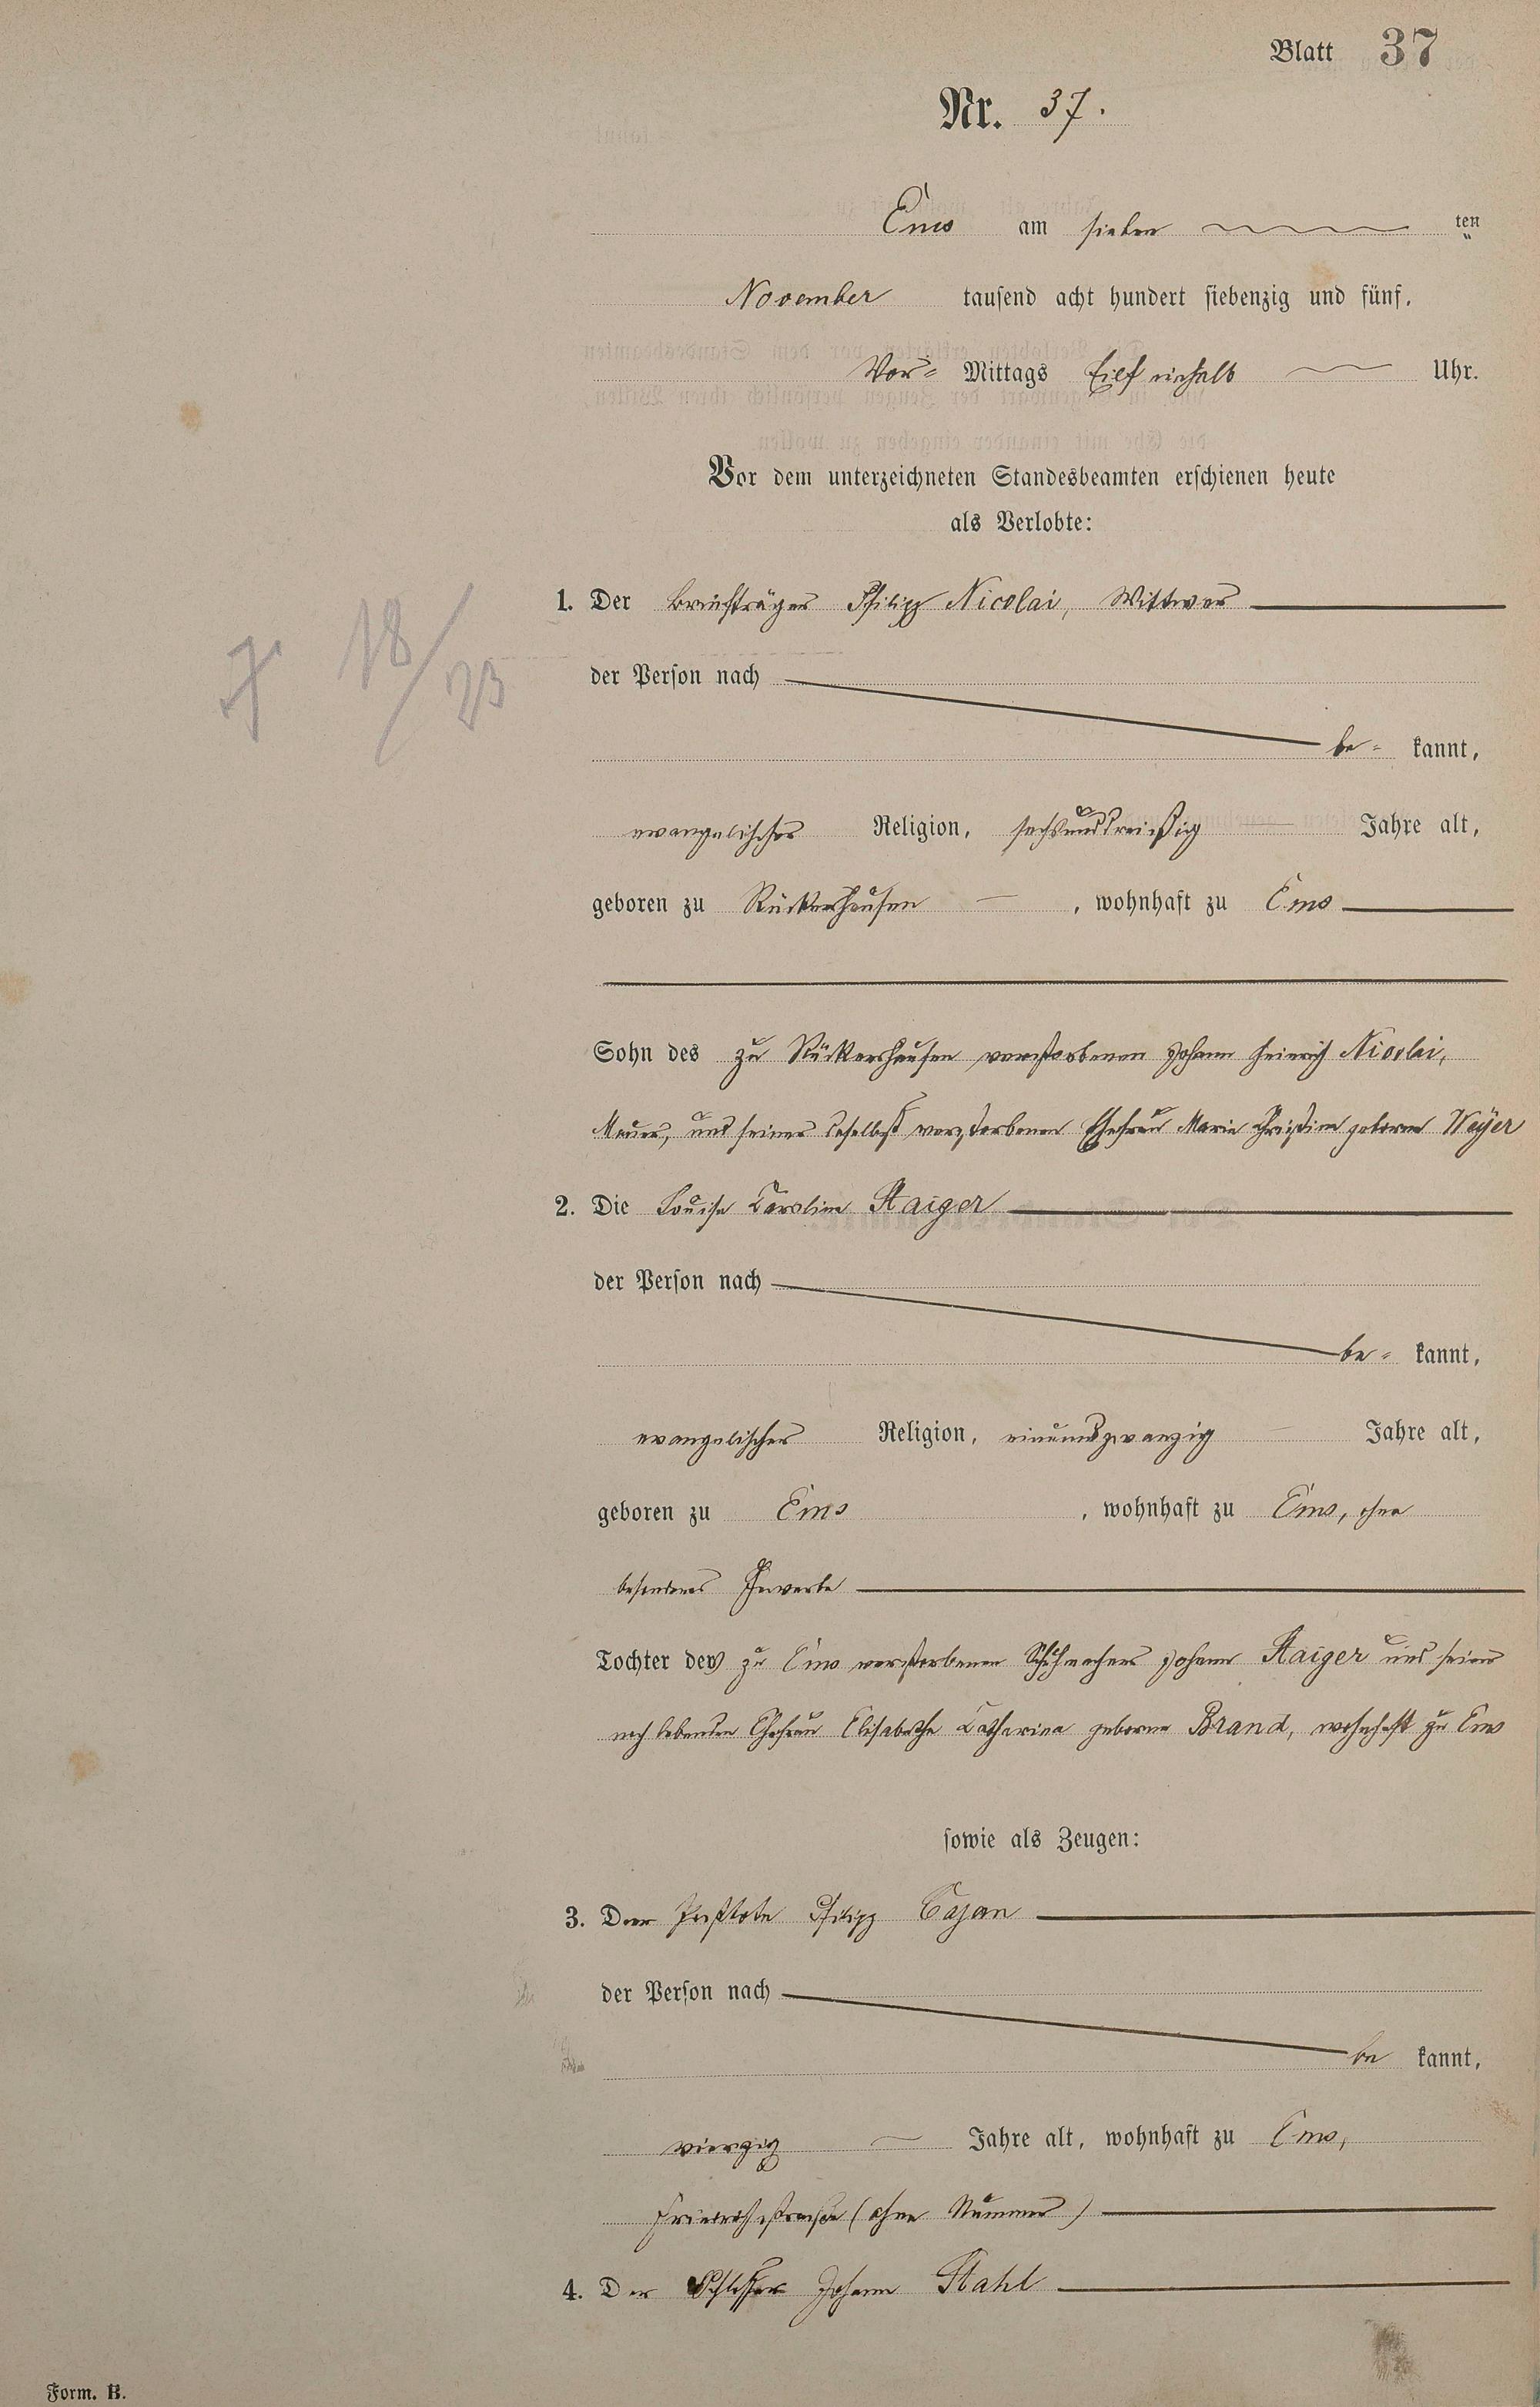 Blatt 37
Nr. 37.
Ems am sieben ten
November tausend acht hundert siebenzig und fünf,
Vor- Mittags Eilf einhalb Uhr.
Vor dem unterzeichneten Standesbeamten erschienen heute
als Verlobte:
1. Der Briefträger Philipp Nicolai, Wittwer
der Person nach
be- kannt,
evangelischer Religion, sechsunddreißig Jahre alt,
geboren zu Rückershausen, wohnhaft zu Ems
Sohn des zu Rückershausen verstorbenen Johann Heinrich Nicolai,
und seiner daselbst verstorbenen Ehefrau Marie Christine geborne Weÿer
2. Die Louise Caroline Staiger
der Person nach
be- kannt,
evangelischer Religion, einundzwanzig Jahre alt,
geboren zu Ems, wohnhaft zu Ems, ohne
besonderes Gewerbe
Tochter des zu Ems verstorbenen Schuhmachers Johann Staiger und seiner
noch lebenden Ehefrau Elisabethe Catharina geborne Brand, wohnhaft zu Ems
sowie als Zeugen:
3. Der Philipp Cajan
der Person nach
be kannt,
vierzig Jahre alt, wohnhaft zu Ems,
Friedrichstraße (ohne Nummer)
4. Der Schlosser Johann Stahl
Form. B.
18/23